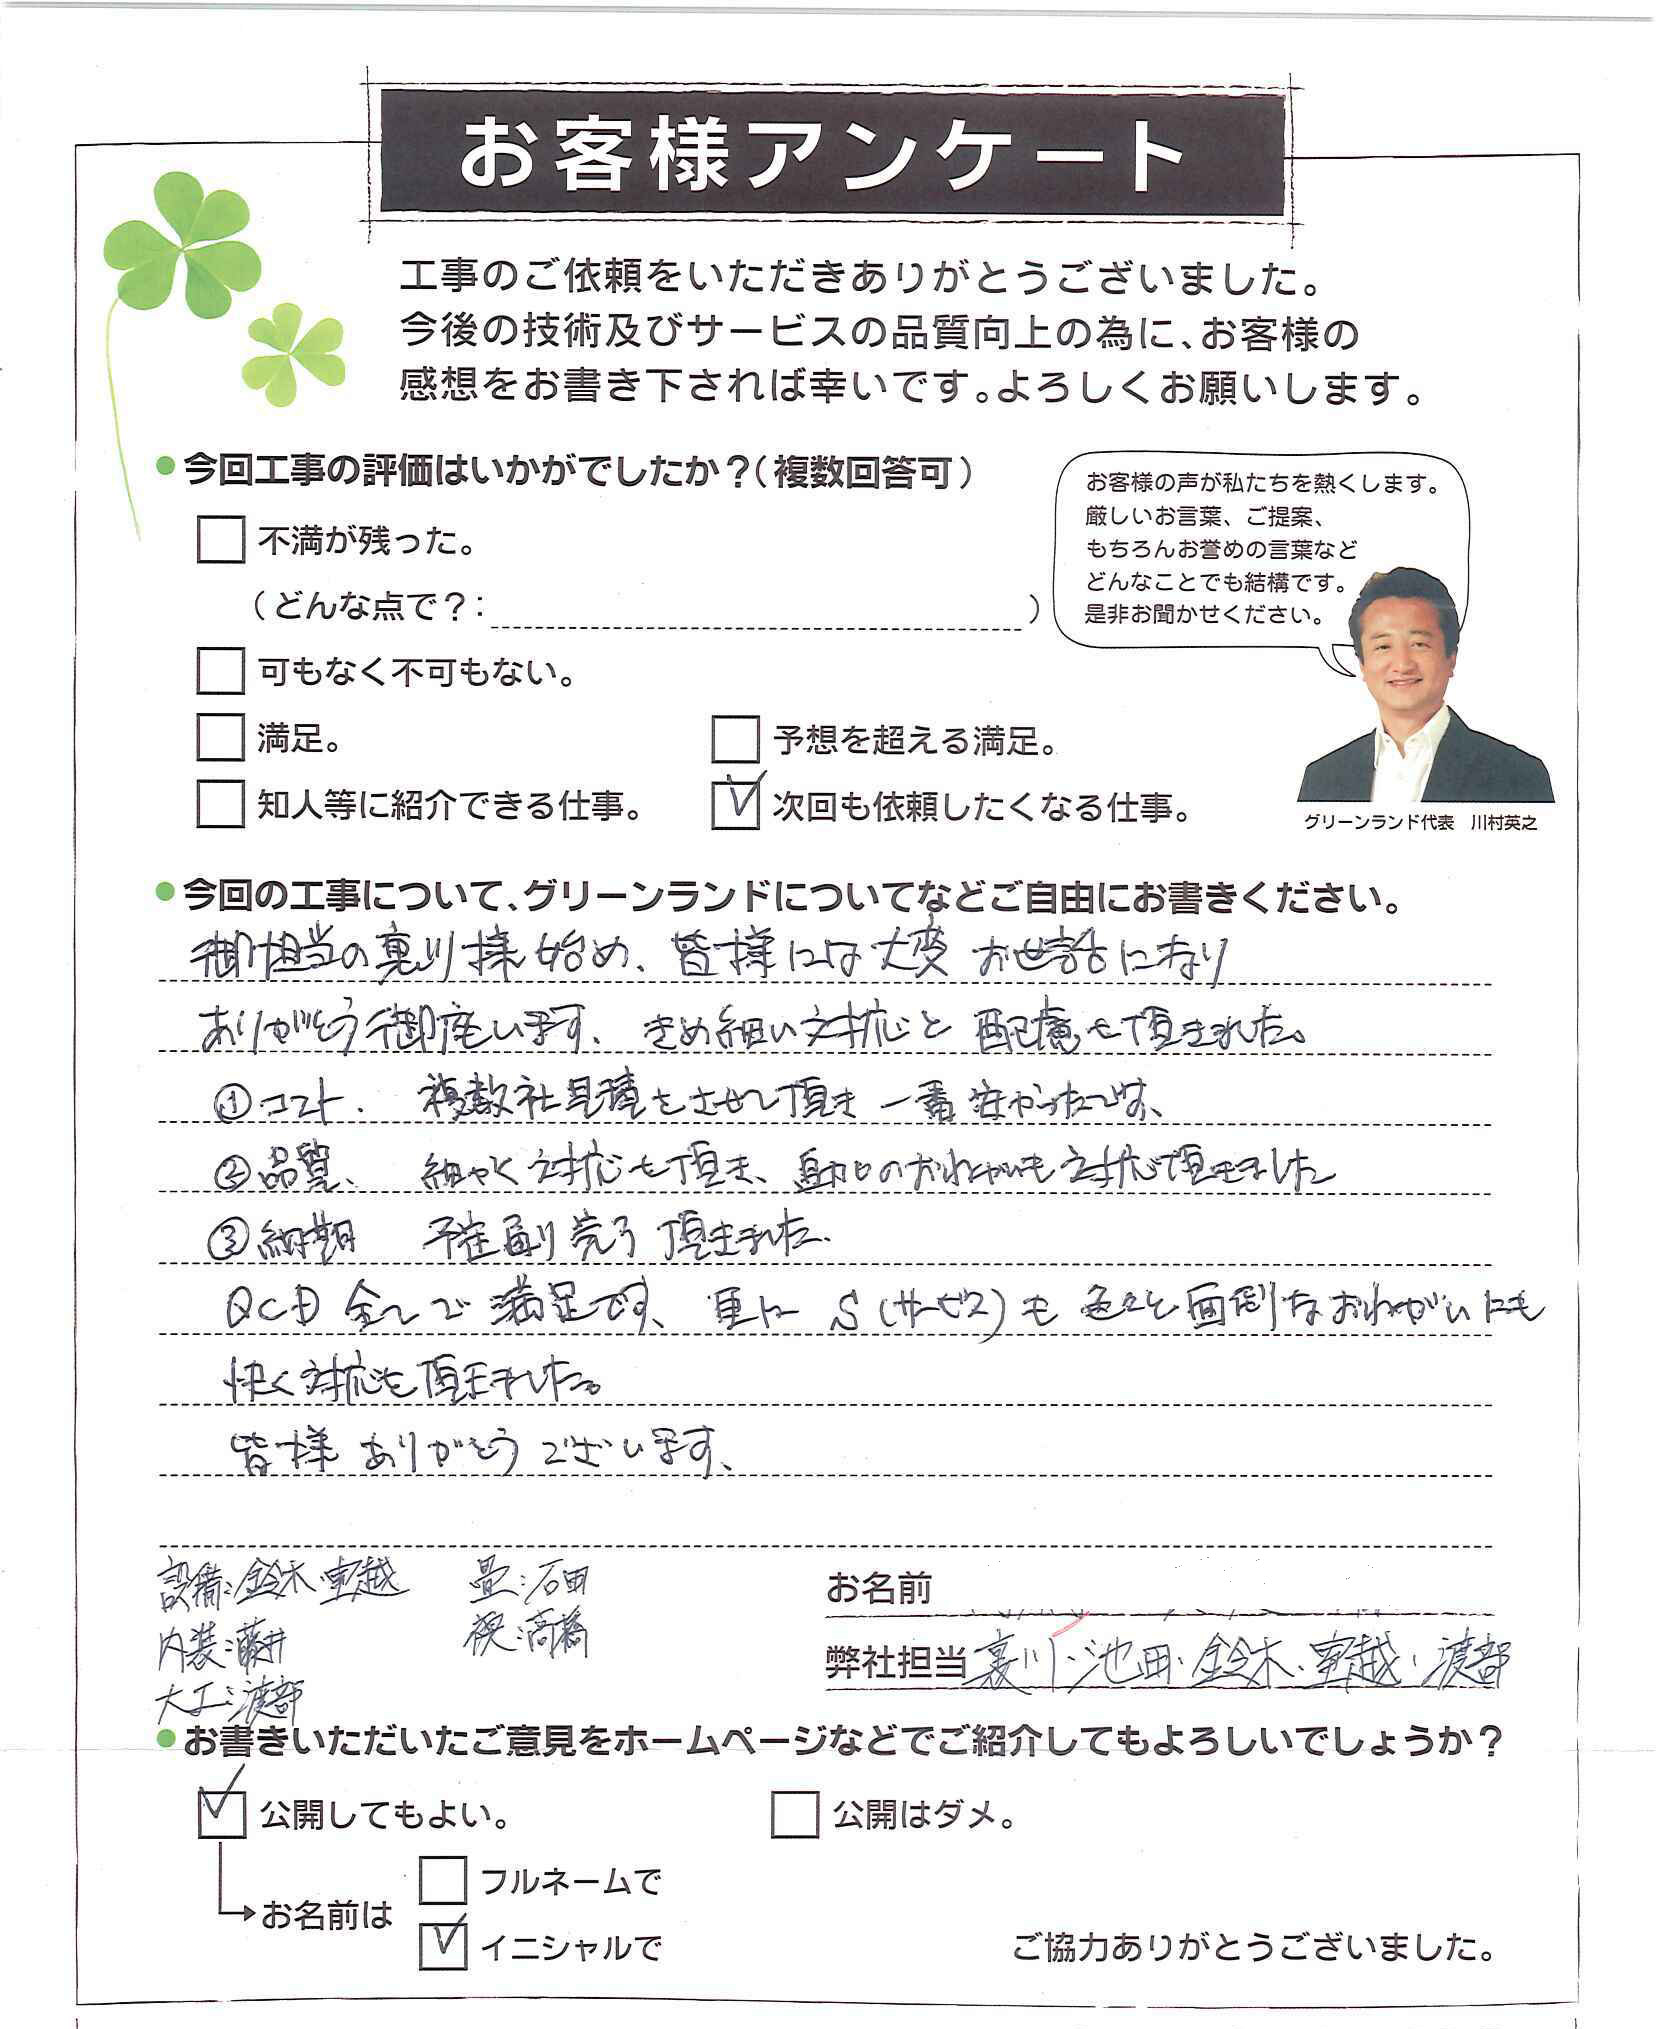 お客様アンケート
工事のご依頼をいただきありがとうございました。
今後の技術及びサービスの品質向上の為に、お客様の
感想をお書き下されば幸いです。よろしくお願いします。
●今回工事の評価はいかがでしたか？（複数回答可）
不満が残った。
（どんな点で？：　）
可もなく不可もない。
満足。
予想を超える満足。
知人等に紹介できる仕事。
次回も依頼したくなる仕事。
お客様の声が私たちを熱くします。
厳しいお言葉、ご提案、
もちろんお誉めの言葉など
どんなことでも結構です。
是非お聞かせください。
グリーンランド代表　川村英之
●今回の工事について、グリーンランドについてなどご自由にお書きください。
御担当の裏川様始め、皆様には大変お世話になり
ありがとう御座います、きめ細い対応と配慮を頂きました。
①コスト. 複数社見積をさせて頂き一番安かったです、
②品質、細かく対応を頂き、追加のおねがいも対応頂きました
③納期　予定通り完了頂きました.
QCD全てで満足です、更に S(サービス)も色々と面倒なおねがいにも
快く対応を頂きました。
皆様ありがとうございます、
設備:鈴木・室越
畳:石田
内装:藤井
襖:高橋
大工:渡部
お名前
弊社担当 裏川・池田・鈴木・室越・渡部
●お書きいただいたご意見をホームページなどでご紹介してもよろしいでしょうか？
公開してもよい。
公開はダメ。
お名前は
フルネームで
イニシャルで
ご協力ありがとうございました。